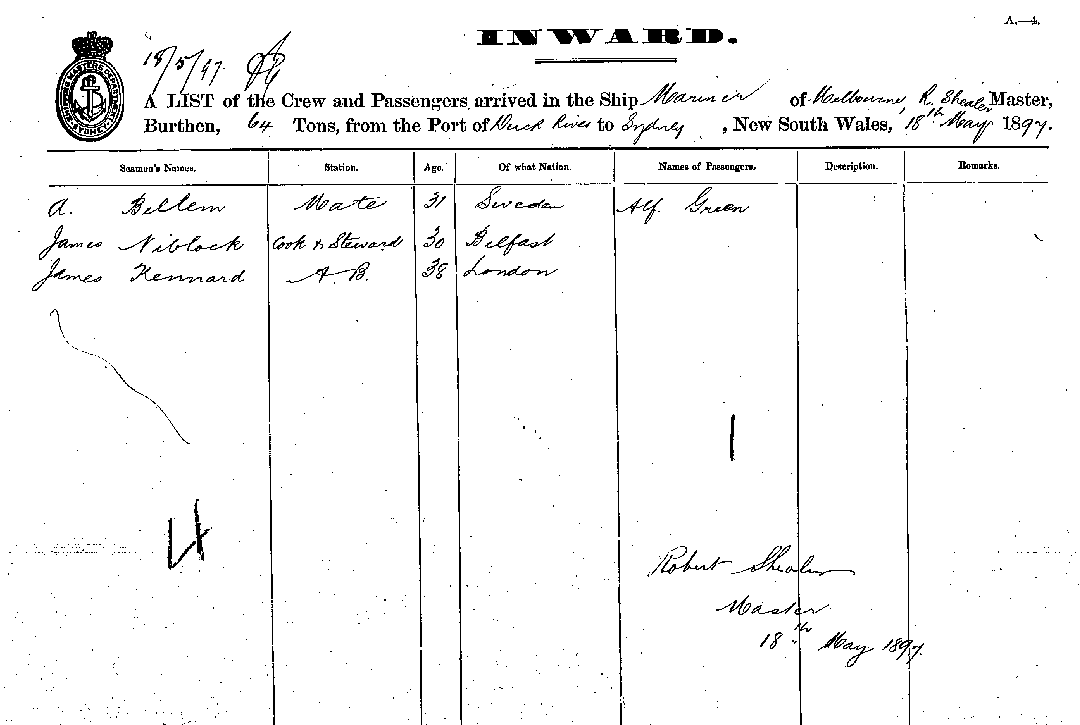 A.—4.
INWARD.
18/5/97
A LIST of the Crew and Passengers arrived in the Ship Mariner of Melbourne, R. Shealer Master,
Burthen, 64 Tons, from the Port of Duck River to Sydney, New South Wales, 18th May 1897.
Seamen's Names. Station. Age. Of what Nation. Names of Passengers. Description. Remarks.
A. Bellem Mate 31 Sweden Alf. Green
James Niblock Cook & Steward 30 Belfast
James Kennard A.B. 38 London
1
4
Robert Shealer
Master
18th May 1897.